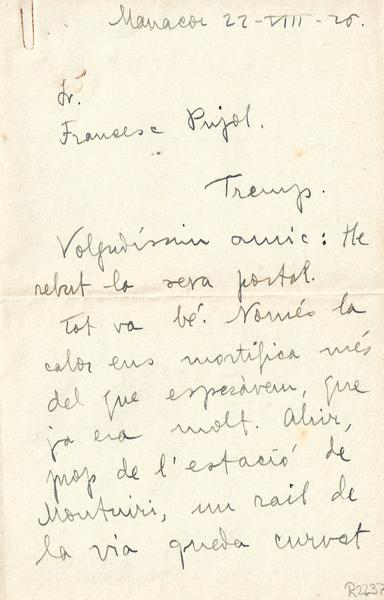 Manacor 22-VIII-26.
Sr.
Francesc Pujol.
Tremp.
Volgudíssim amic: He
rebut la seva postal.
Tot va bé. Només la
calor ens mortifica més
del que esperàvem, que
ja era molt. Ahir,
prop de l'estació de
Montuiri, un rail de
la via queda curvat
R2237